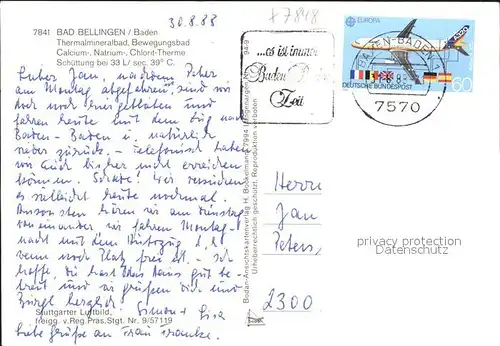 30.8.88
x7848
7841 BAD BELLINGEN / Baden
Thermalmineralbad, Bewegungsbad
Calcium-, Natrium-, Chlorid-Therme
Schüttung bei 33 L/ sec. 39° C.
Lieber Jan, nachdem Peter
am Montag abgefahren, sind wir
doch noch hiergeblieben und
fahren heute mit dem Zug nach
Baden-Baden u. natürlich
wieder zurück. - Telefonisch haben
wir auch bisher nicht erreichen
können. Schade! Wir versuchen
es vielleicht heute nochmal.
Ansonsten hören wir am Dienstag
voneinander wir fahren Montag-
nacht mit dem
wenn noch Platz frei ist. - Ich
hoffe, du hast das Haus gut be-
treut und wir grüßen dich und
herzlich! Simon + Lisa
Liebe Grüße an Frau Franke.
Stuttgarter Luftbild,
freigg. v. Reg. Präs. Stgt. Nr. 9/57119
Boden-Ansichtskartenverlag H. 7994
Urheberrechtlich geschützt. Reproduktion verboten
...es ist immer
Baden
Zeit
EUROPA
BADEN-BADEN 1
7570
DEUTSCHE BUNDESPOST
60
Herrn
Jan
Peters,
2300
privacy protection
Datenschutz